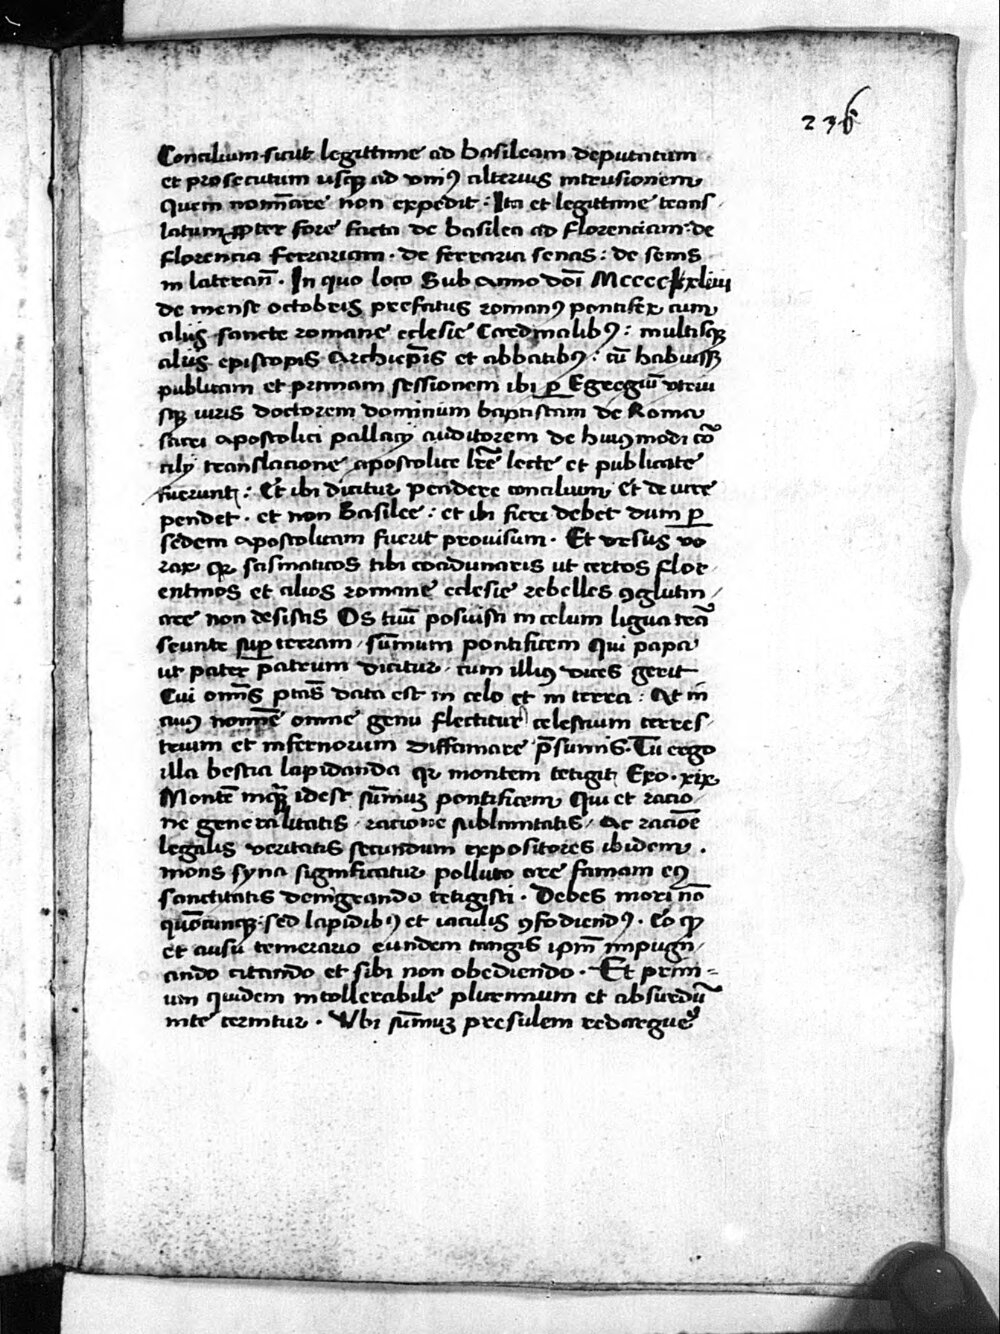 236
Concilium sicut legittime ad basileam deputatum
et prosecutum usqꝫ ad vniꝰ alterius intrusionem
quem nomīare non expedit : Ita et legittime trans
latum ꝓpter fore facta de basilea ad florenciam : de
florencia ferrariam . de ferraria senas : de senis
in laterañ . In quo loco Sub Anno doī Mcccc xliii
de mense octobris prefatus romanꝰ pontifex cum
aliis sancte romane eclesie Cardinalibꝰ : multisqꝫ
aliis episcopis Archiep̄is et abbatibꝰ : cū habuissꝫ
publicam et primam sessionem ibi ꝑ Egregiū vtrius
sqꝫ iuris doctorem dominum baptistam de Roma
sacri apostolici pallacij auditorem de huiꝰmodi cō
cilij translacione apostolice lr̄e lecte et publicate
fuerunt : Et ibi dicitur pendere concilium et de iure
pendet . et non Basilee : et ibi fieri debet dum ꝑ
sedem apostolicam fuerit prouisum . Et vrsus vo
rax qr̄ scismaticos tibi coadunaris ut certos flor
entinos et alios romane eclesie rebelles ꝯglutin
are non desistis Os tuū posuisti in celum ligua trā
seunte suꝑ terram / sūmum pontificem Qui papa
ut pater patrum dicitur / cum illiꝰ vices gerit
Cui om̄is p̄tas data est in celo et in terra : At in
cuiꝰ nomīe omne genu flectitur celestium terres
trium et infernorum diffamare p̄sumis . Tu ergo
illa bestia lapidanda qr̄ montem tetigit Exo . xix
Montē inqꝫ idest sūmuꝫ pontificem Qui et racio
ne generalitatis / racione sublimitatis / Ac raciōe
legalis veritatis secundum expositores ibidem .
mons syna significatur polluto ore famam eiꝰ
sanctitatis denigrando tetigisti . Debes mori nō
quōcunqꝫ : sed lapidibꝰ et iaculis ꝯfodiendꝰ . Eo qꝫ
et ausu temerario eundem tangis ip̄m impugn
ando citando et sibi non obediendo . Et prim=
um quidem intollerabile plurimum et absurdū
inte cernitur . Vbi sūmuꝫ presulem redargue